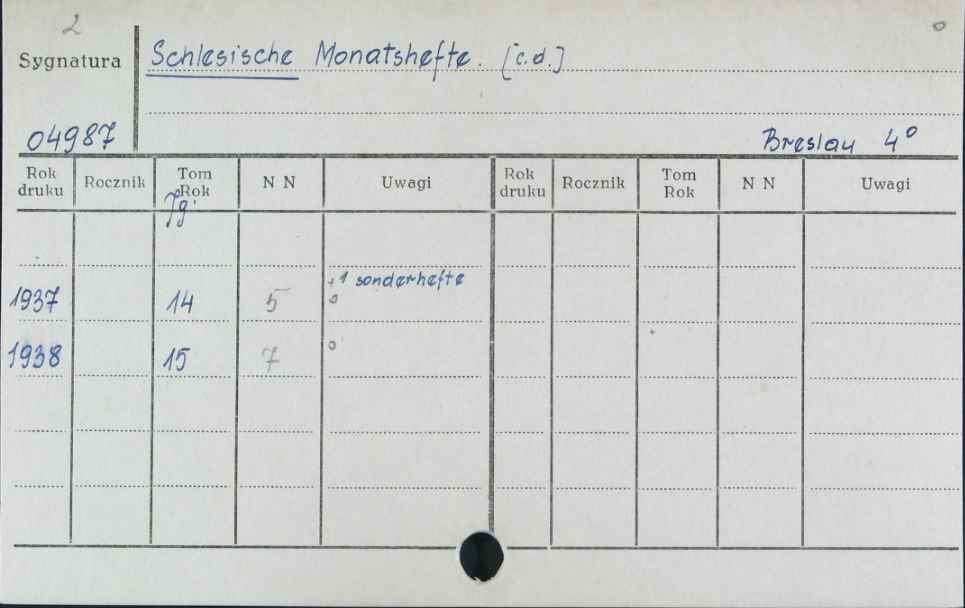 2
o
Sygnatura
Schlesische Monatshefte. [c.d.]
04987
Breslau 4°
Rok druku Rocznik Tom Rok N N Uwagi Rok druku Rocznik Tom Rok N N Uwagi
Jg.
+1 sonderhefte
1937 14 5 o
1938 15 7 o